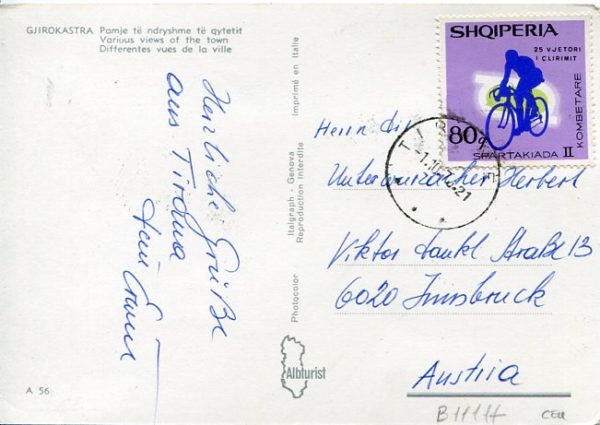 GJIROKASTRA Pamje të ndryshme të qytetit
Various views of the town
Differentes vues de la ville
Herzliche Grüße
aus Tirana
Erwin
A 56
Photocolor Italgraph - Genova Imprimé en Italie
Reproduction Interdite
Albturist
SHQIPERIA
25 VJETORI
I ÇLIRIMIT
KOMBETARE
80q
SPARTAKIADA II
TIRANE
Herrn Dir.
Unterwurzacher Herbert
Viktor Dankl Straße 13
6020 Innsbruck
Austria
B11117